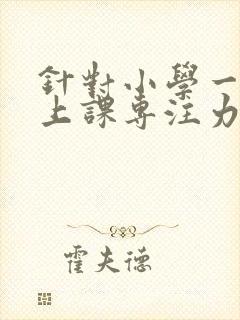 針對小學一
上課專注力
霍夫德